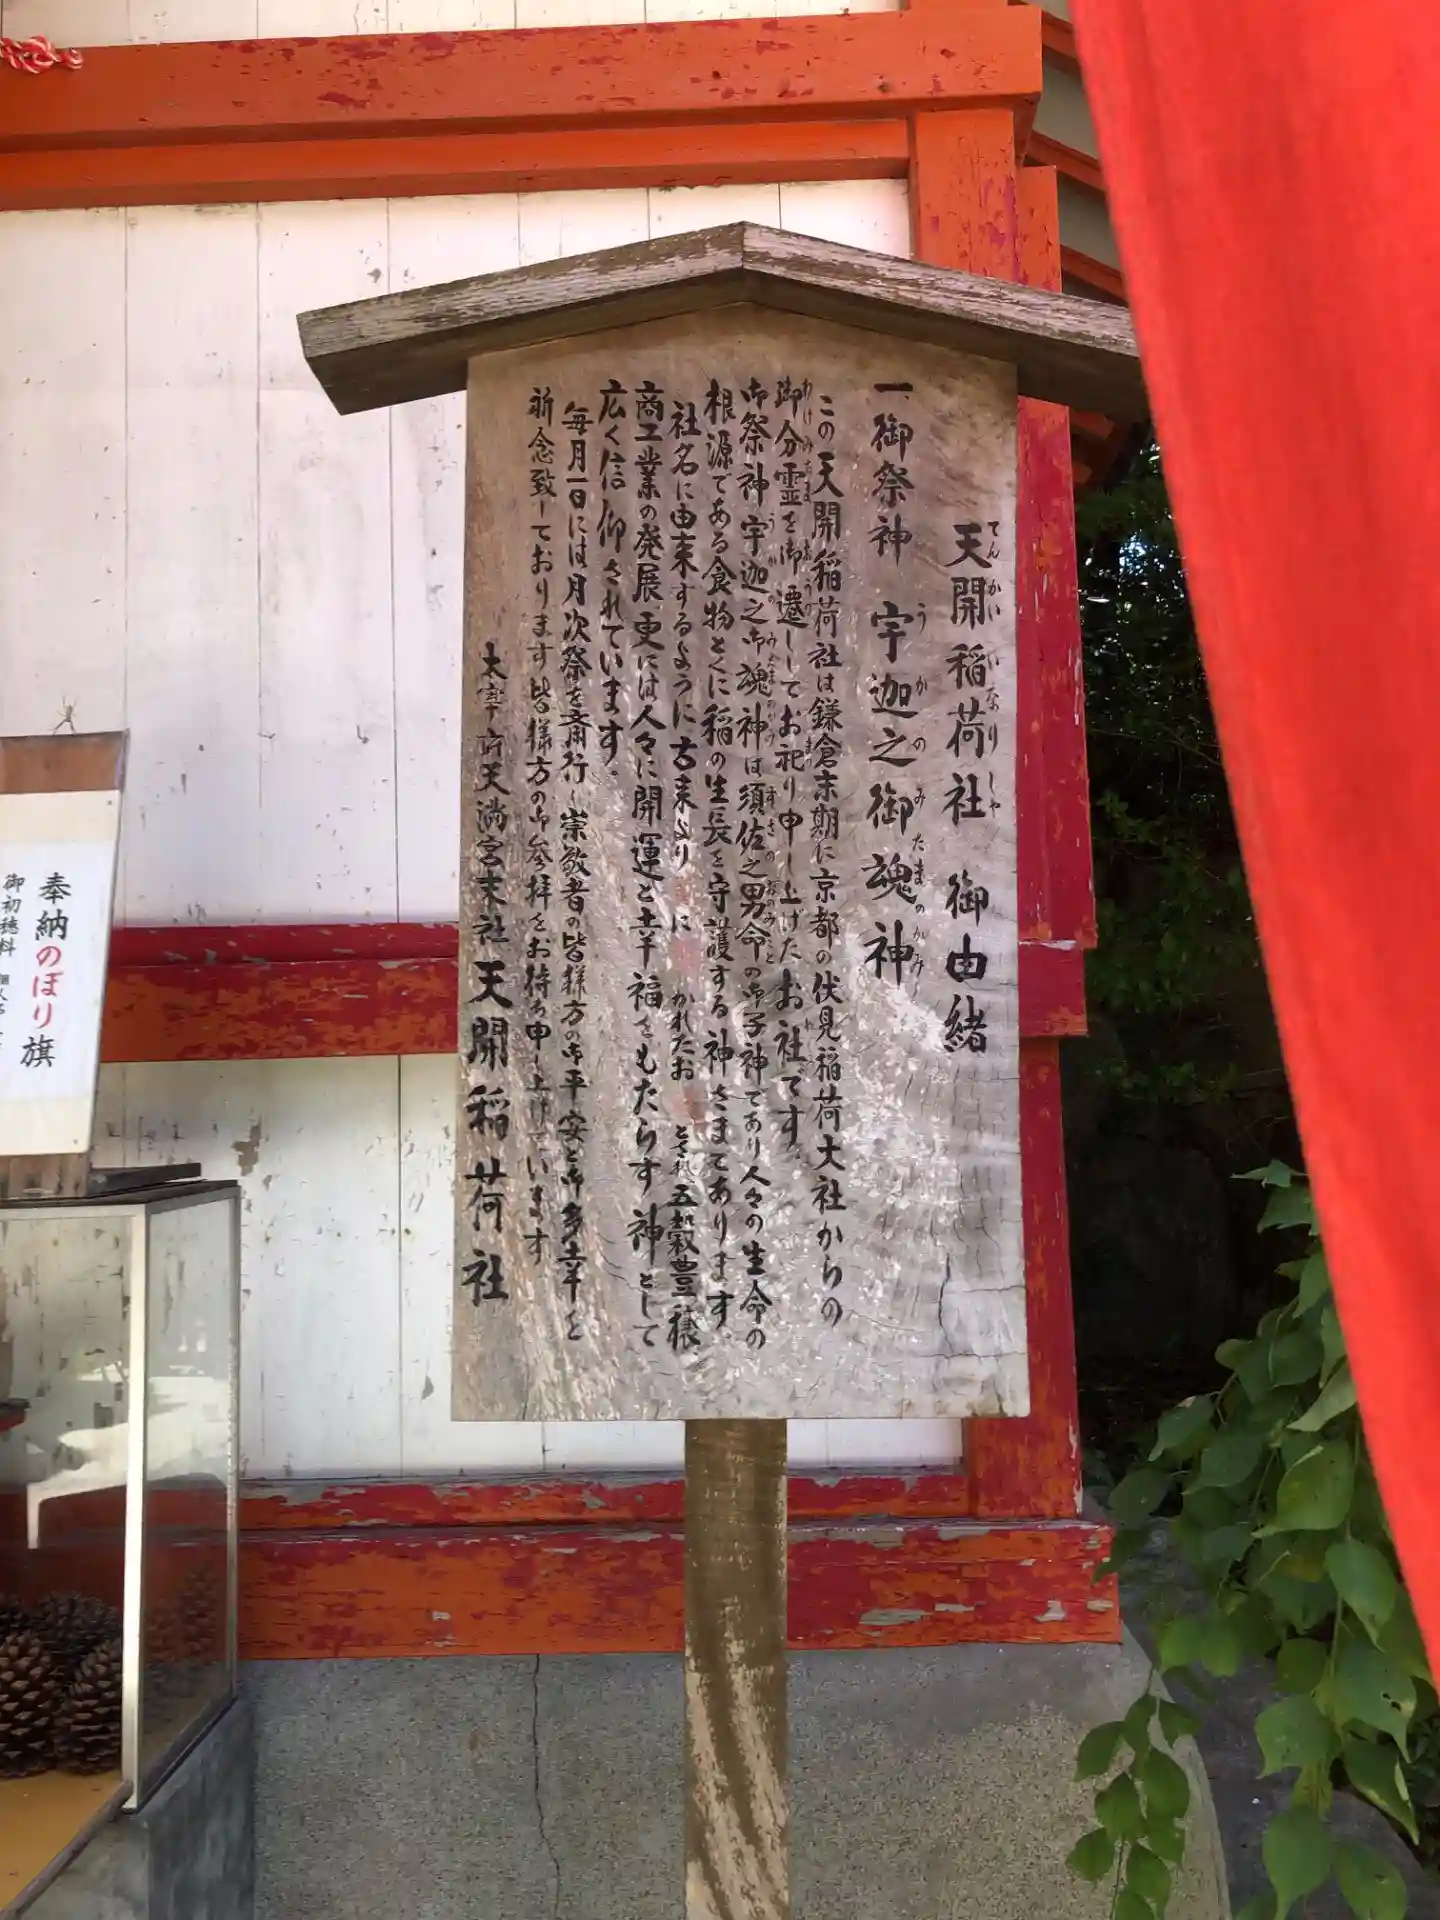 天開稲荷社 御由緒
てんかいいなりしゃ
一、御祭神 宇迦之御魂神
うかのみたまのかみ
この天開稲荷社は鎌倉末期に京都の伏見稲荷大社からの
御分霊を御遷ししてお祀り申し上げたお社です。
わけみたま
御祭神宇迦之御魂神は須佐之男命の御子神であり人々の生命の
うかのみたまのかみ すさのおのみこと
根源である食物とくに稲の生長を守護する神さまであります。
社名に由来するように古来より に かれたお とされ五穀豊穣、
商工業の発展、更には人々に開運と幸福をもたらす神として
広く信仰されています。
毎月一日には月次祭を斎行し崇敬者の皆様方の御平安と御多幸を
祈念致しております 皆様方の御参拝をお待ち申し上げています
太宰府天満宮末社 天開稲荷社
奉納のぼり旗
御初穂料